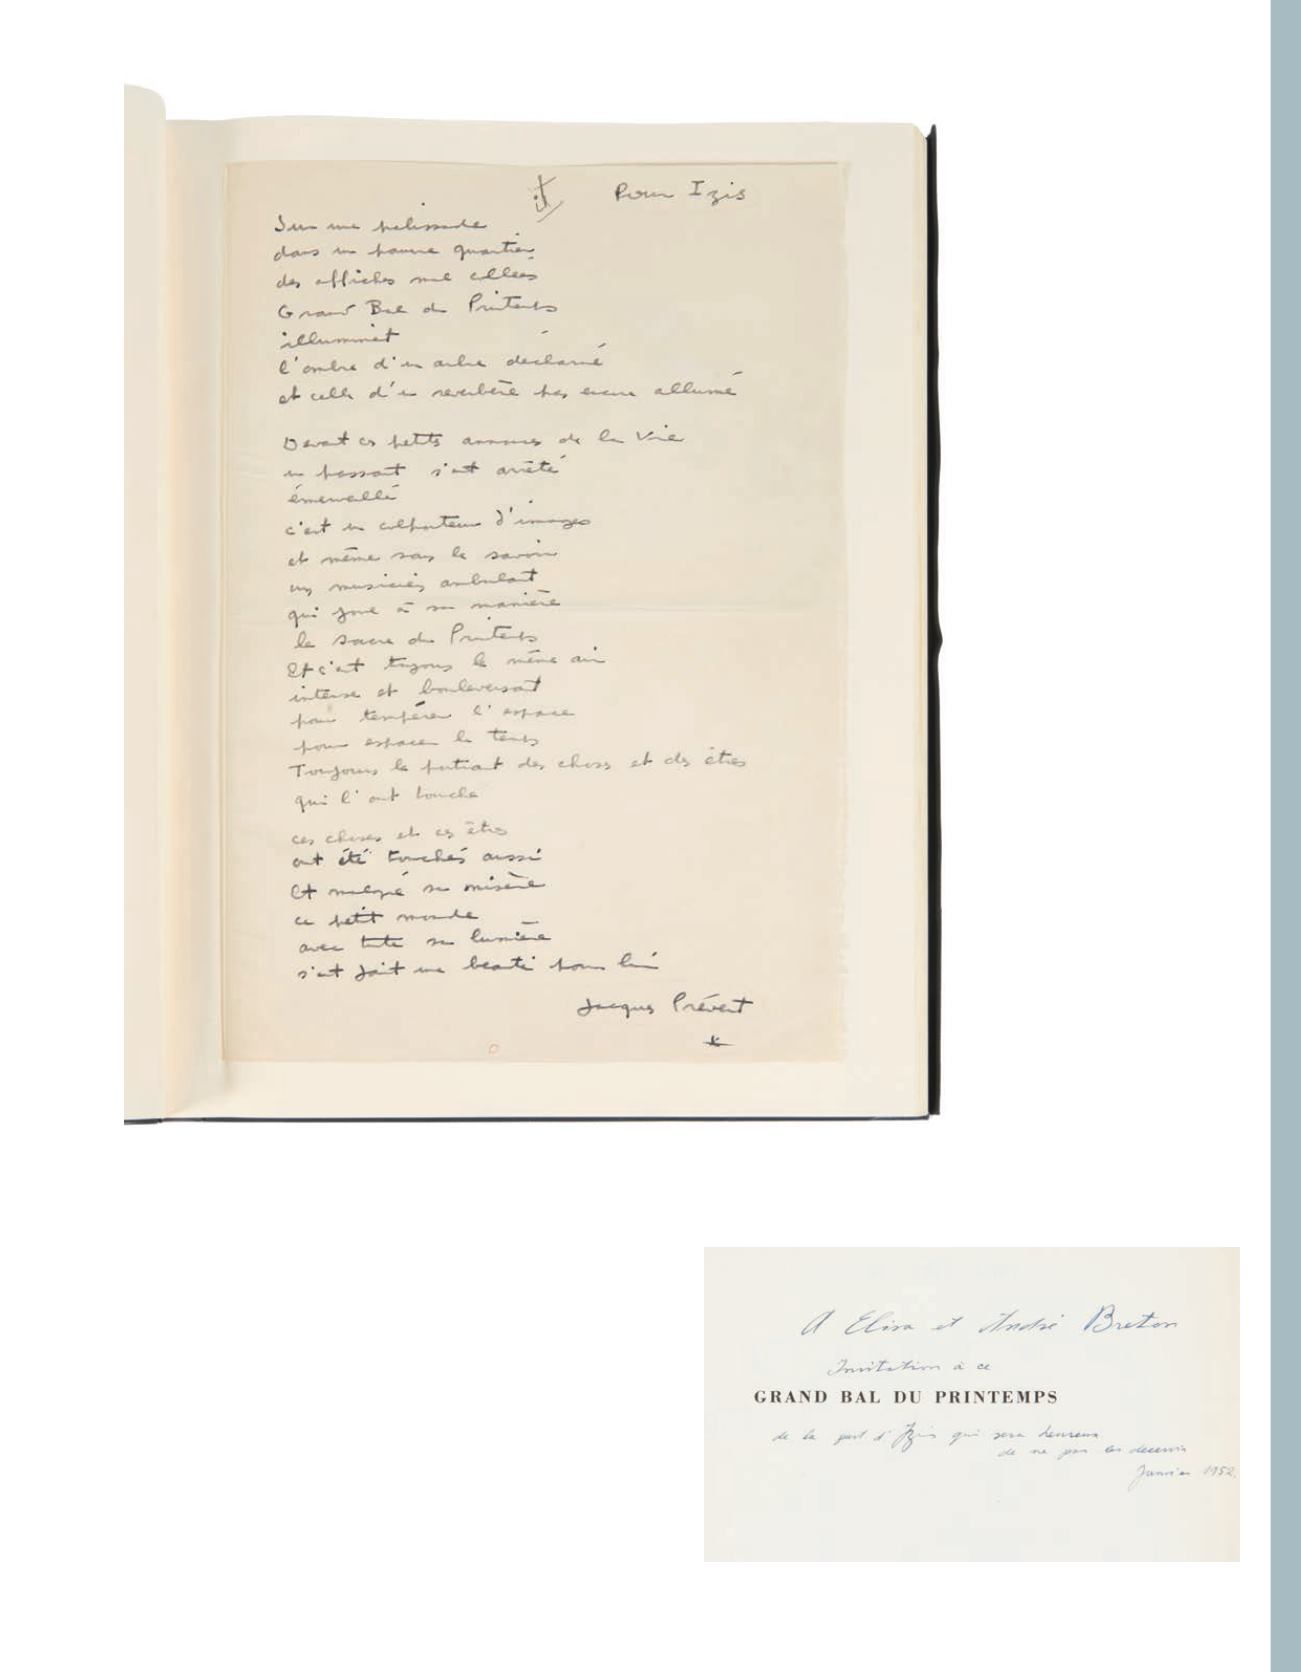 Pour Izis
Sur une palissade
dans un pauvre quartier
des affiches mal collées
Grand Bal du Printemps
illuminent
l'ombre d'un arbre décharné
et celle d'un réverbère pas encore allumé
Devant ces petits annonces de la Vie
un passant s'est arrêté
émerveillé
c'est un colporteur d'images
et même sans le savoir
un musicien ambulant
qui joue à sa manière
le Sacre du Printemps
Et c'est toujours le même air
intense et bouleversant
pour tempérer l'espace
pour espacer le temps
Toujours le portrait des choses et des êtres
qui l'ont touché
ces choses et ces êtres
ont été touchés aussi
Et malgré sa misère
ce petit monde
avec toute sa lumière
s'est fait une beauté pour lui
Jacques Prévert
A Elisa et André Breton
Invitation à ce
GRAND BAL DU PRINTEMPS
de la part d'Izis qui sera heureux
de ne pas les decevoir
Janvier 1952.